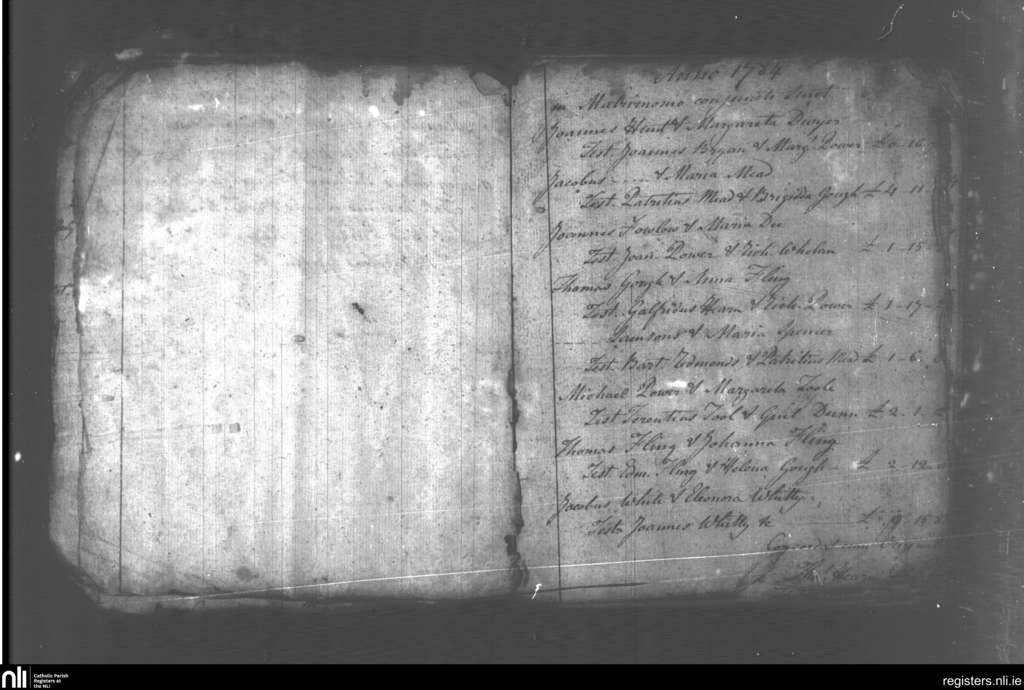 Anno 1784
in Matrimonio conjuncti sunt
Joannes Hunt & Margareta Dwyer
Test. Joannes Bryan & Marg. Power £ 0 - 16
Jacobus ---- & Maria Mead
Test. Patritius Mead & Brigidda Gough £ 4 - 11
Joannes Fowlow & Maria Dee
Test. Joan. Power & Whelan £ 1 - 15
Thomas Gough & Anna Fling
Test. Galfridus Hearn & Power £ 1 - 17
& Maria Spencer
Test. Bart. Edmonds & Patritius Mead £ 1 - 6
Michael Power & Margareta Toole
Test Terentius Tool & Dunn £ 2 - 1
Thomas Fling & Johanna Fling
Test. Edm. Fling & Helena Gough - £ 2 - 12
Jacobus White & Eleonora Whitty
Test. Joannes Whitty &c £ 15
cum
Hearn
nli
Catholic Parish
Registers at
the NLI
registers.nli.ie